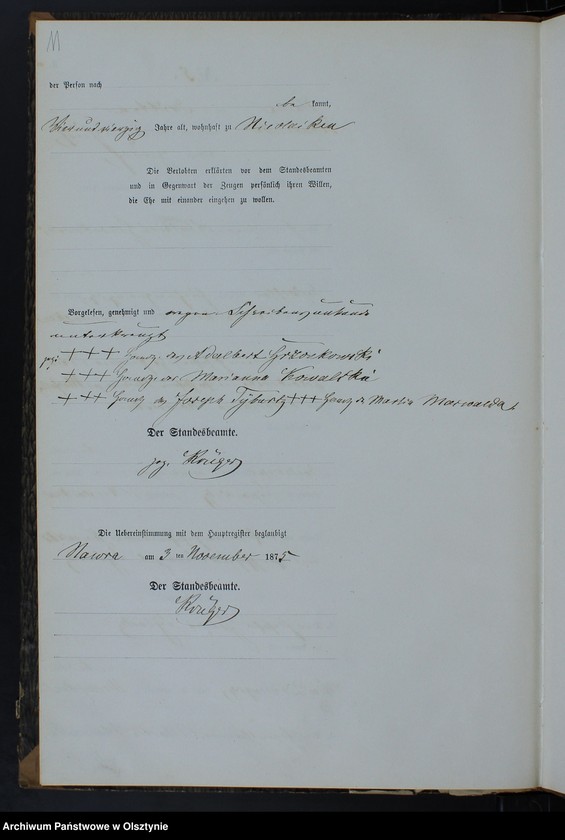 11
der Person nach
be kannt,
Vierundvierzig Jahre alt, wohnhaft zu
Die Verlobten erklärten vor dem Standesbeamten
und in Gegenwart der Zeugen persönlich ihren Willen,
die Ehe mit einander eingehen zu wollen.
Vorgelesen, genehmigt und wegen Schreibensunkunde
unterkreuzt
gez: +++ Handz. des Adalbert Grzonkowski
+++ Handz. der Marianna Kowalska
+++ Handz. des Joseph Tyburtz +++ Handz. d. Martin Marwalda
Der Standesbeamte.
gez. Krüger
Die Uebereinstimmung mit dem Hauptregister beglaubigt
Nawra am 3 ten November 1875
Der Standesbeamte.
Krüger
Archiwum Państwowe w Olsztynie